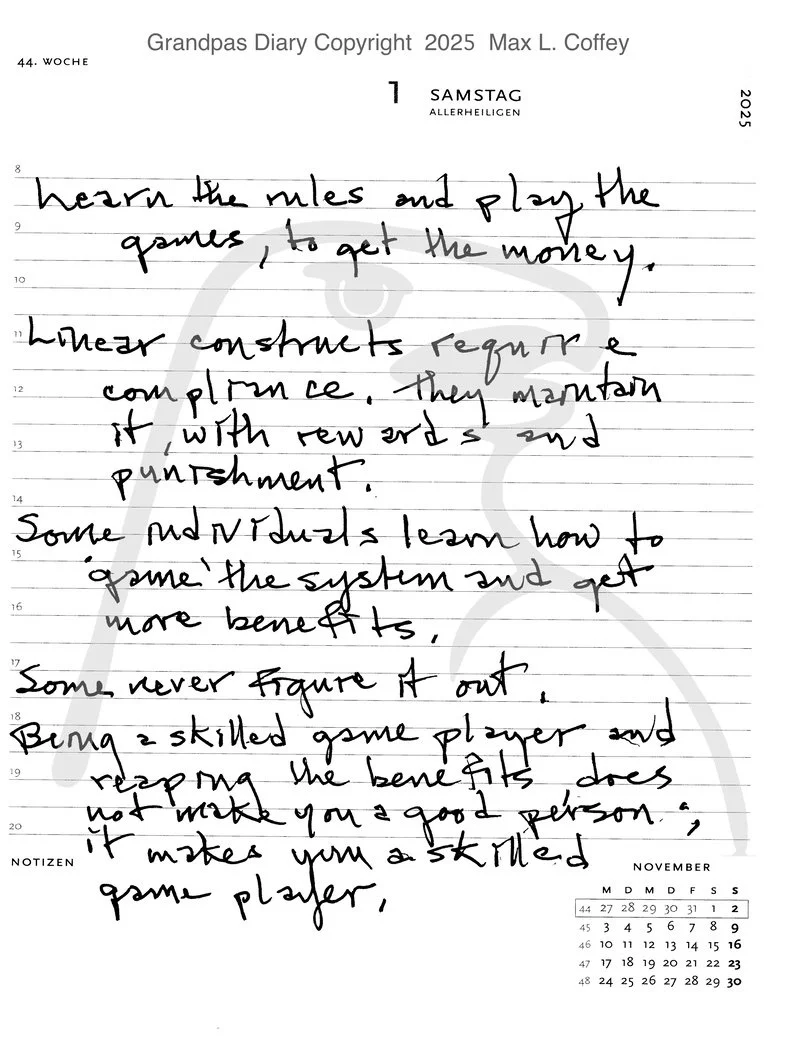 Grandpas Diary Copyright 2025 Max L. Coffey
44. WOCHE
1 SAMSTAG
ALLERHEILIGEN
2025
8
Learn the rules and play the
9
games, to get the money.
10
11
Linear constructs require
12
compliance. they maintain
it, with rewards and
13
punishment.
14
Some individuals learn how to
15
'game' the system and get
16
more benefits.
17
Some never figure it out.
18
Being a skilled game player and
19
reaping the benefits, does
not make you a good person.;
20
it makes you a skilled
NOTIZEN
game player.
NOVEMBER
M D M D F S S
44 27 28 29 30 31 1 2
45 3 4 5 6 7 8 9
46 10 11 12 13 14 15 16
47 17 18 19 20 21 22 23
48 24 25 26 27 28 29 30